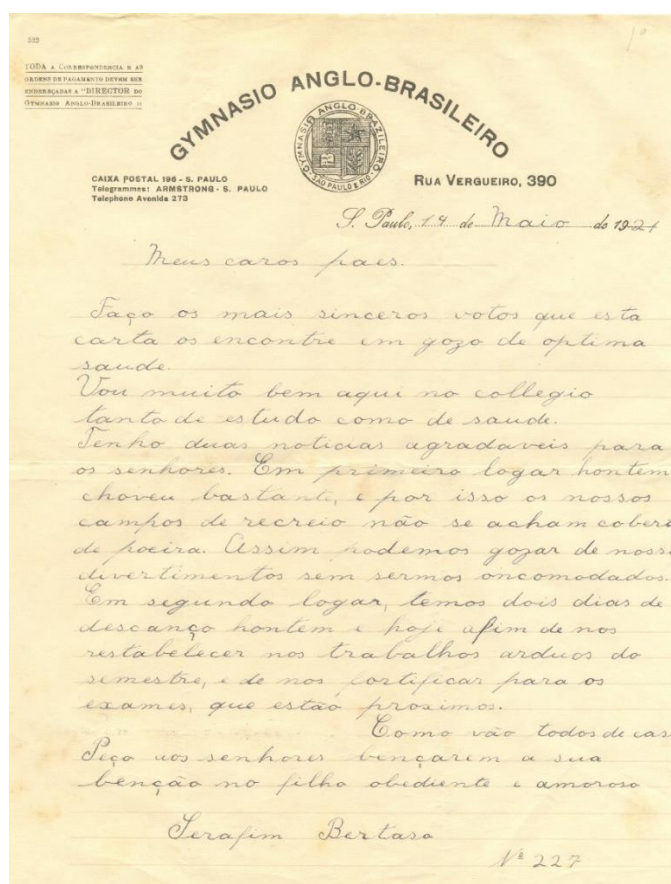 522
1º
TODA A CORRESPONDENCIA E AS
ORDENS DE PAGAMENTO DEVEM SER
ENDEREÇADAS A "DIRECTOR DO
GYMNASIO ANGLO-BRASILEIRO"
GYMNASIO ANGLO-BRASILEIRO
GYMNASIO ANGLO-BRAZILEIRO
SÃO PAULO E RIO
CAIXA POSTAL 196 - S. PAULO
Telegrammes: ARMSTRONG - S. PAULO
Telephone Avenida 273
RUA VERGUEIRO, 390
S. Paulo, 14 de Maio de 1921
Meus caros paes.
Faço os mais sinceros votos que esta
carta os encontre em gozo de optima
saude.
Vou muito bem aqui no collegio
tanto de estudo como de saude.
Tenho duas noticias agradaveis para
os senhores. Em primeiro logar hontem
choveu bastante, e por isso os nossos
campos de recreio não se acham cobert
de poeira. Assim podemos gozar de nosso
divertimentos sem sermos oncomodados.
Em segundo logar, temos dois dias de
descanço hontem e hoje afim de nos
restabelecer nos trabalhos arduos do
semestre, e de nos fortificar para os
exames, que estão proximos.
Como vão todos de cas
Peço aos senhores bençarem a sua
benção no filho obediente e amoroso
Serafim Bertaso
Nº 227